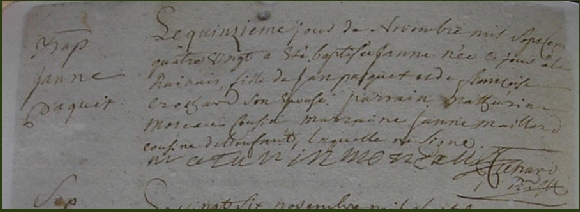 Bap
janne
paquit
Le quinzieme jour de Novembre mil Sept Cent
quatre vingt a été baptisée janne née ce jour a la
fille de jan pasquet et de françoise
son epouse, parrain, Mathurin
moreau cousin marraine janne maillard
cousine de l'enfant, laquelle ne signe
maturin moreau Richard
Bap
Le vingt Six novembre mil